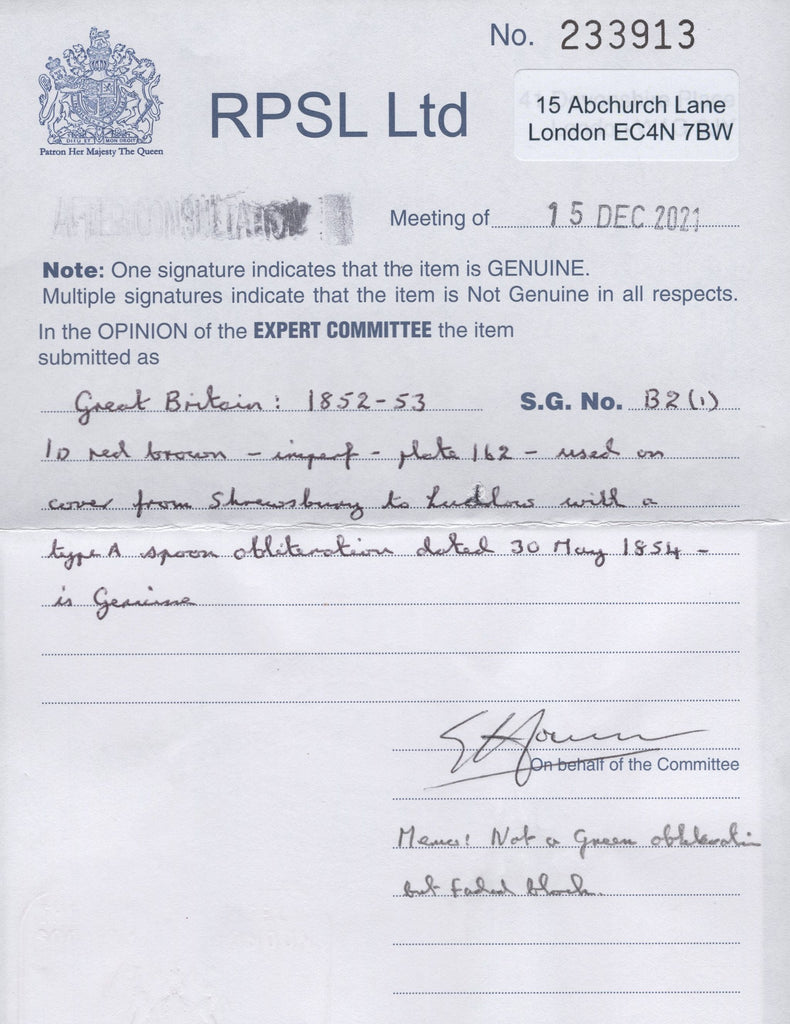 No. 233913
RPSL Ltd
15 Abchurch Lane
London EC4N 7BW
DIEU ET MON DROIT
Patron Her Majesty The Queen
AFTER CONSULTATION
Meeting of 15 DEC 2021
Note: One signature indicates that the item is GENUINE.
Multiple signatures indicate that the item is Not Genuine in all respects.
In the OPINION of the EXPERT COMMITTEE the item
submitted as
Great Britain: 1852-53 S.G. No. B2(1)
1D red brown - imperf - plate 162 - used on
cover from Shrewsbury to Ludlow with a
type A spoon obliteration dated 30 May 1854 -
is Genuine
On behalf of the Committee
Memo: Not a Green obliteration
but Faded black.